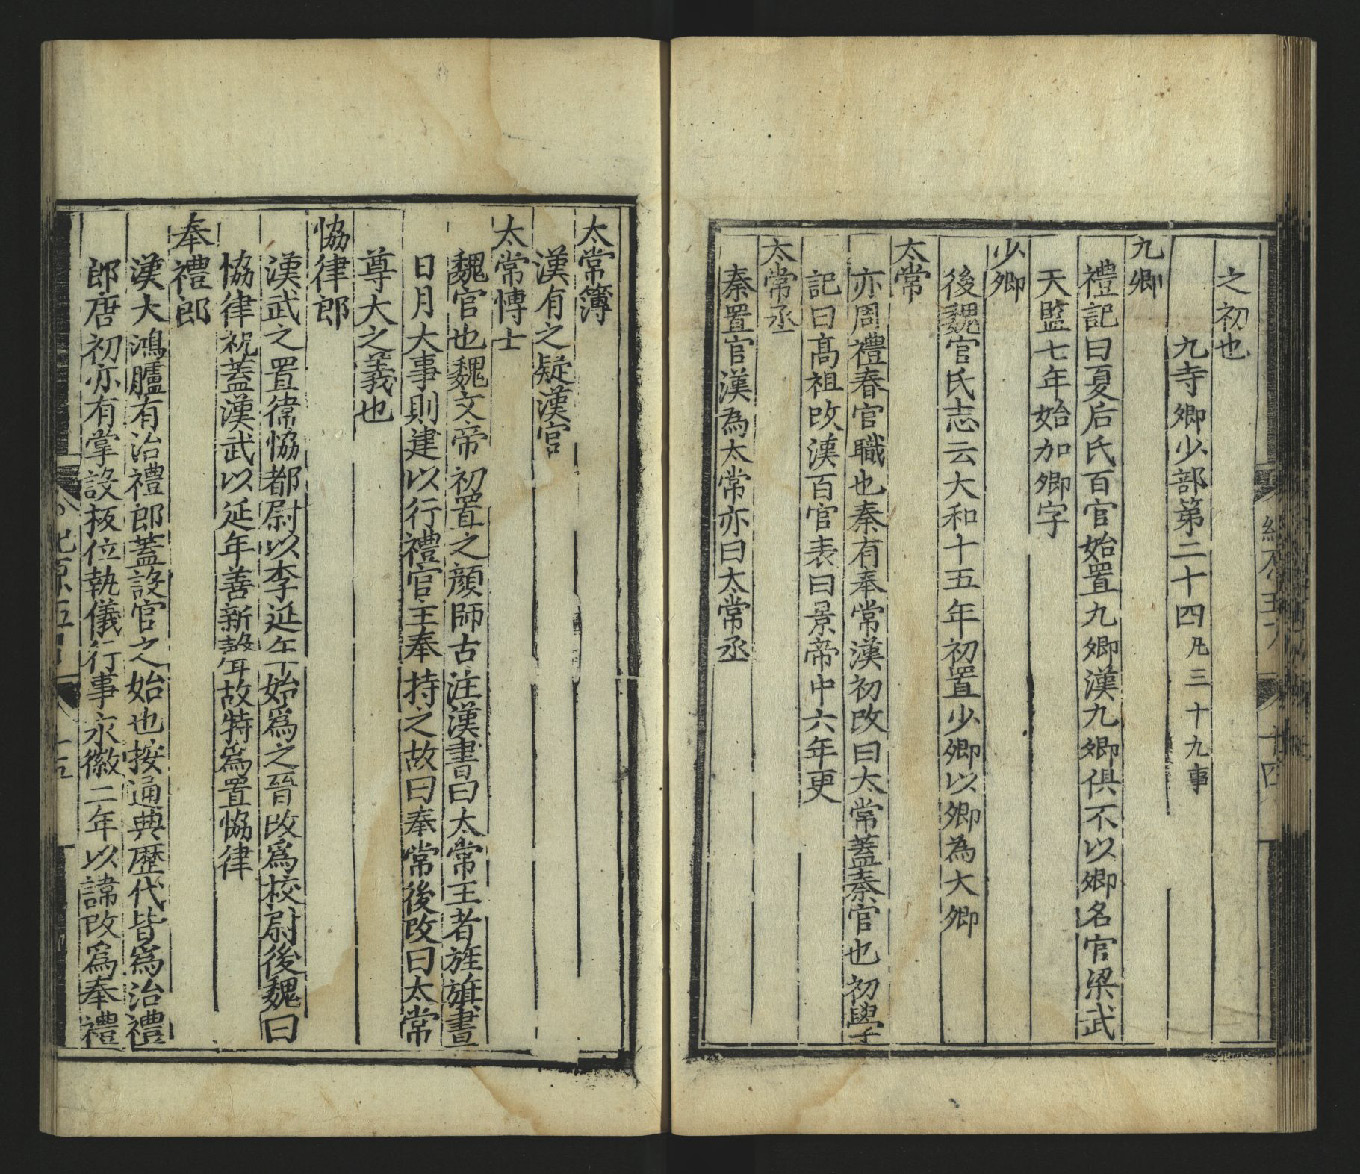 之初也
九寺卿少部第二十四凡三十九事
九卿
禮記曰夏后氏百官始置九卿漢九卿俱不以卿名官梁武
天監七年始加卿字
少卿
後魏官氏志云大和十五年初置少卿以卿為大卿
太常
亦周禮春官職也秦有奉常漢初改曰太常蓋秦官也初學
記曰高祖改漢百官表曰景帝中六年更
太常丞
秦置官漢為太常亦曰太常丞
太常簿
漢有之疑漢官
太常博士
魏官也魏文帝初置之顔師古注漢書曰太常王者旌旗畫
日月大事則建以行禮官主奉持之故曰奉常後改曰太常
尊大之義也
恊律郎
漢武之置律恊都尉以李延年始爲之晉改爲校尉後魏曰
恊律祝蓋漢武以延年善新聲故特爲置恊律
奉禮郎
漢大鴻臚有治禮郎蓋設官之始也按通典歷代皆爲治禮
郎唐初亦有掌設板位執儀行事永徽二年以諱改爲奉禮